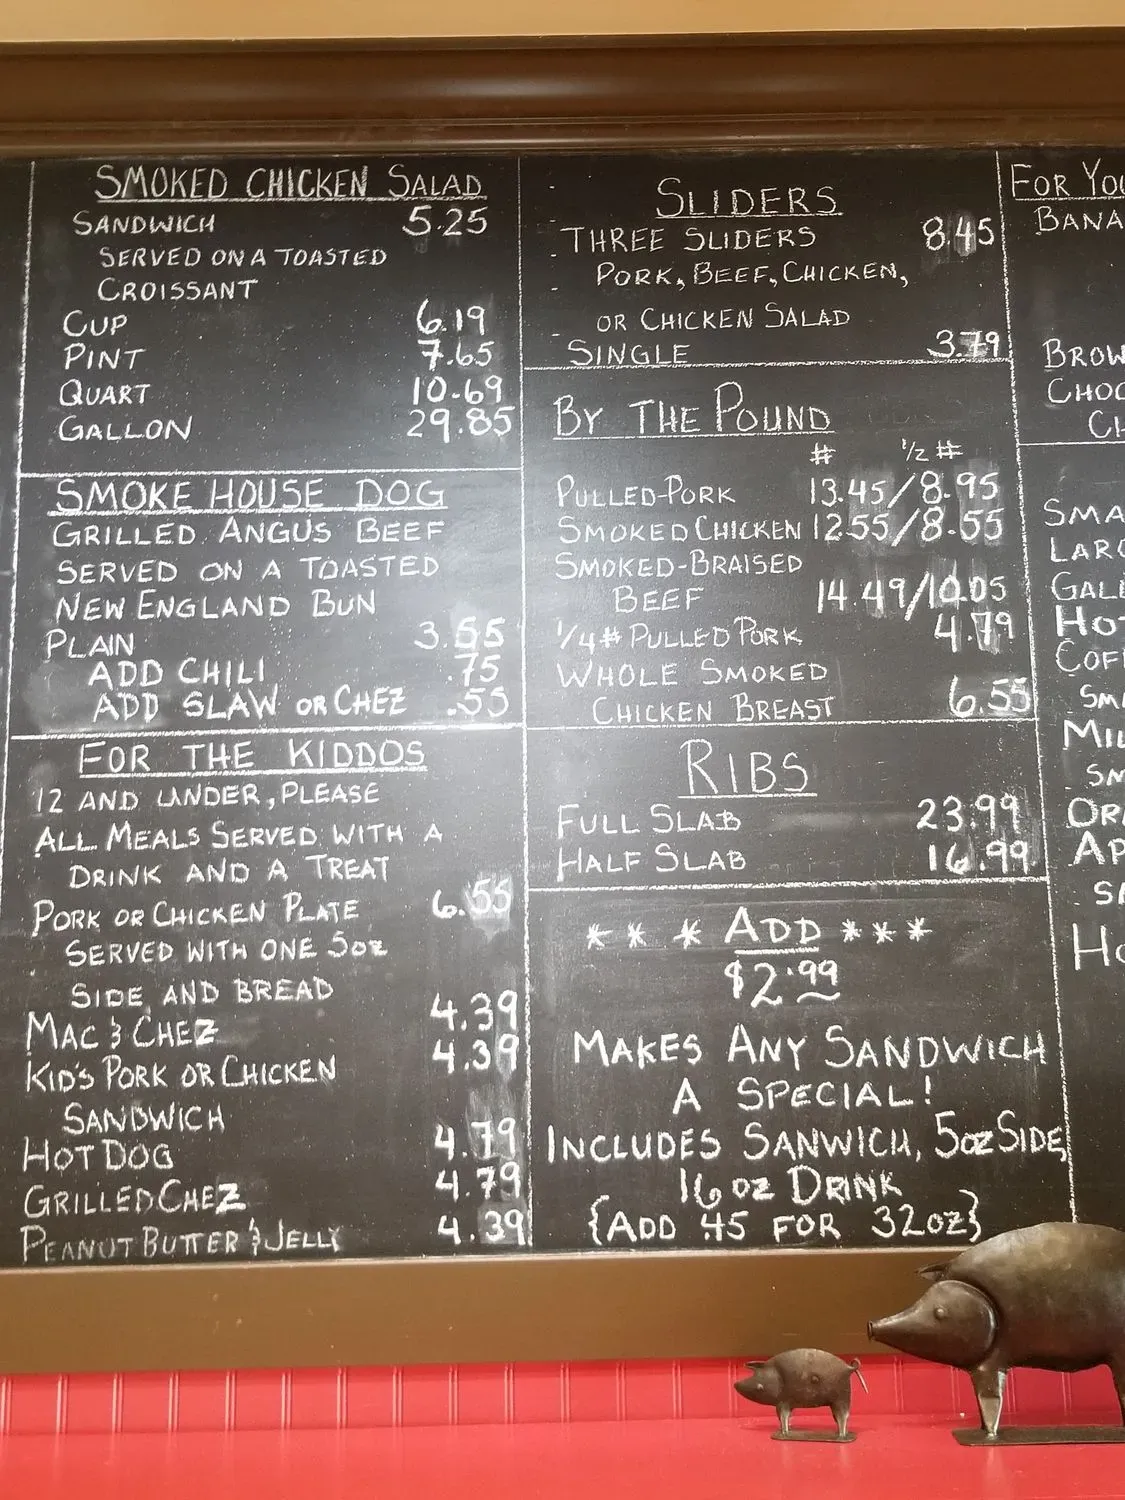 SMOKED CHICKEN SALAD
SANDWICH 5.25
SERVED ON A TOASTED
CROISSANT
CUP 6.19
PINT 7.65
QUART 10.69
GALLON 29.85
SMOKE HOUSE DOG
GRILLED ANGUS BEEF
SERVED ON A TOASTED
NEW ENGLAND BUN
PLAIN 3.55
ADD CHILI .75
ADD SLAW OR CHEZ .55
FOR THE KIDDOS
12 AND UNDER, PLEASE
ALL MEALS SERVED WITH A
DRINK AND A TREAT
PORK OR CHICKEN PLATE 6.55
SERVED WITH ONE 5OZ
SIDE AND BREAD
MAC & CHEZ 4.39
KID'S PORK OR CHICKEN 4.39
SANDWICH
HOT DOG 4.79
GRILLED CHEZ 4.79
PEANUT BUTTER & JELLY 4.39
SLIDERS
THREE SLIDERS 8.45
PORK, BEEF, CHICKEN,
OR CHICKEN SALAD
SINGLE 3.79
BY THE POUND
# 1/2 #
PULLED-PORK 13.45/8.95
SMOKED CHICKEN 12.55/8.55
SMOKED-BRAISED
BEEF 14.49/10.05
1/4# PULLED PORK 4.79
WHOLE SMOKED
CHICKEN BREAST 6.55
RIBS
FULL SLAB 23.99
HALF SLAB 16.99
* * * ADD * * *
$2.99
MAKES ANY SANDWICH
A SPECIAL!
INCLUDES SANWICH, 5OZ SIDE,
16 OZ DRINK
{ADD .45 FOR 32OZ}
FOR YOU
BANA
BROW
CHOC
CH
SMA
LARG
GALL
HOT
COFF
SM
MIL
SM
OR
AP
SM
HO